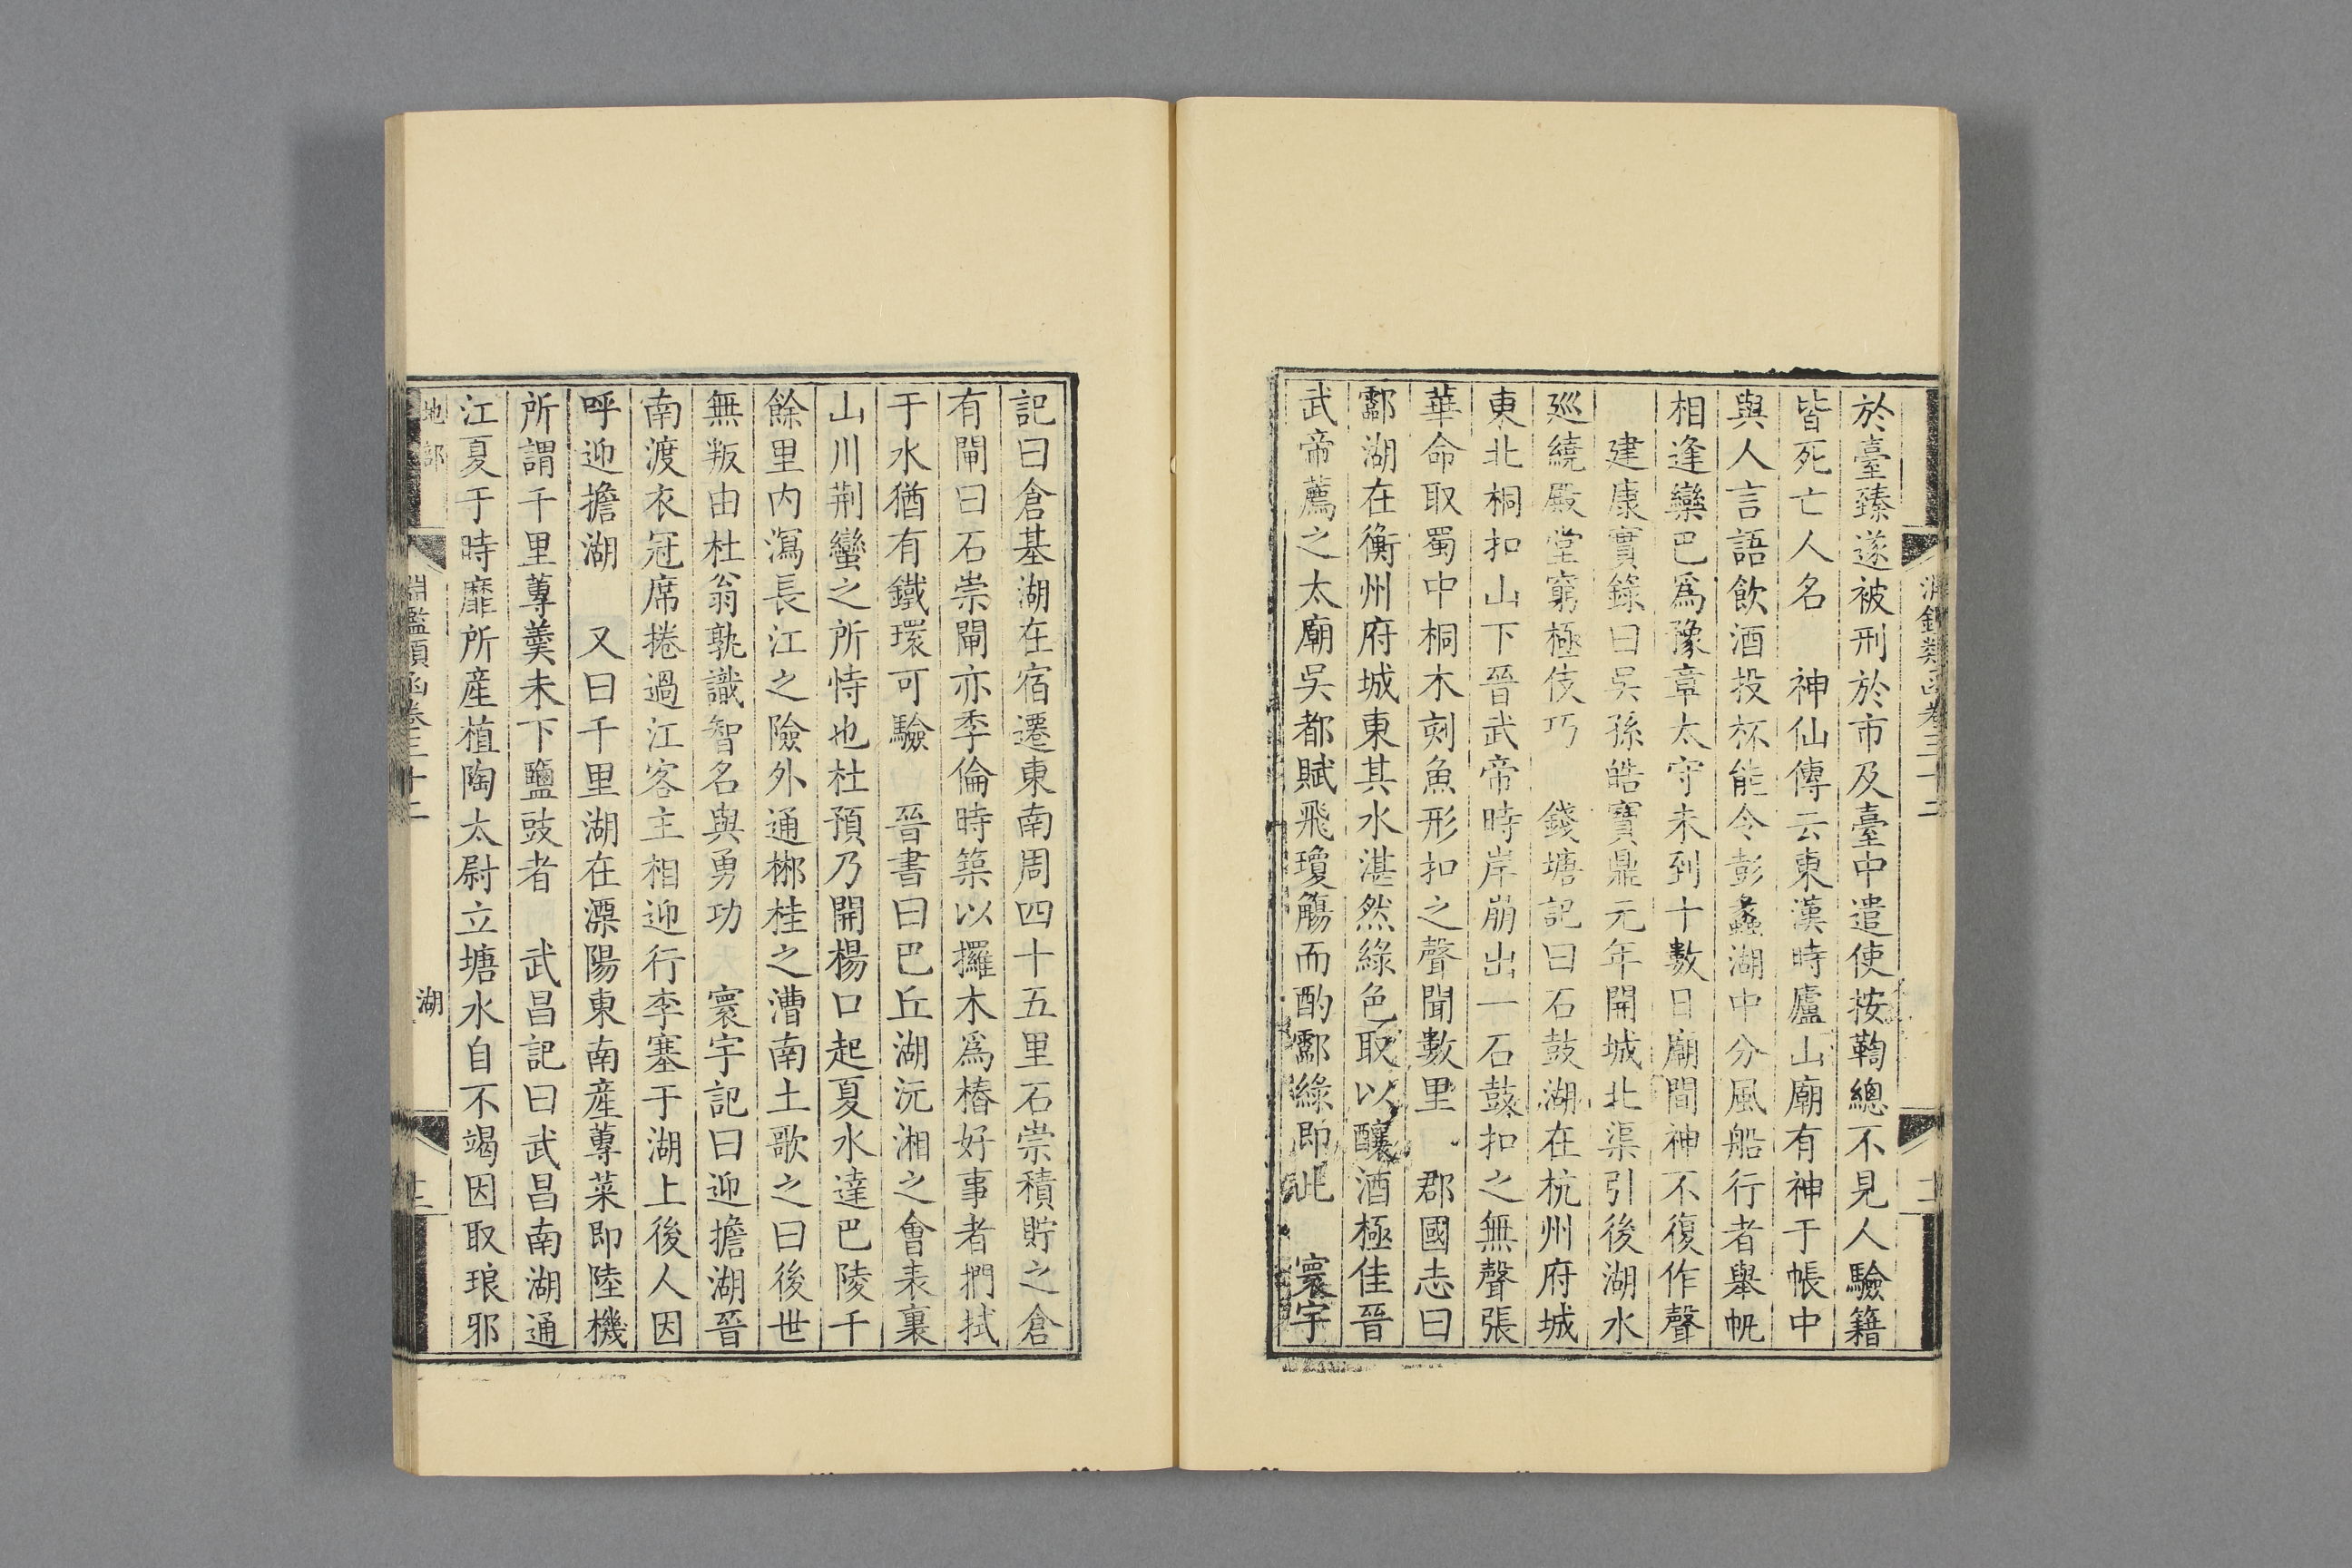 於臺臻遂被刑於市及臺中遣使按鞫總不見人驗籍
皆死亡人名　神仙傳云東漢時廬山廟有神于帳中
與人言語飲酒投杯能令彭蠡湖中分風船行者舉帆
相逢欒巴爲豫章太守未到十數日廟間神不復作聲
建康實錄曰吳孫皓寶鼎元年開城北渠引後湖水
巡繞殿堂窮極伎巧　錢塘記曰石鼓湖在杭州府城
東北桐扣山下晉武帝時岸崩出一石鼓扣之無聲張
華命取蜀中桐木刻魚形扣之聲聞數里　郡國志曰
酃湖在衡州府城東其水湛然綠色取以釀酒極佳晉
武帝薦之太廟吳都賦飛瓊觴而酌酃綠即此　寰宇
記曰倉基湖在宿遷東南周四十五里石崇積貯之倉
有閘曰石崇閘亦季倫時築以攞木爲樁好事者捫拭
于水猶有鐵環可驗　晉書曰巴丘湖沅湘之會表裏
山川荆蠻之所恃也杜預乃開楊口起夏水達巴陵千
餘里内瀉長江之險外通郴桂之漕南土歌之曰後世
無叛由杜翁孰識智名與勇功　寰宇記曰迎擔湖晉
南渡衣冠席捲過江客主相迎行李塞于湖上後人因
呼迎擔湖　又曰千里湖在溧陽東南産蓴菜即陸機
所謂千里蓴羹未下鹽豉者　武昌記曰武昌南湖通
江夏于時靡所産植陶太尉立塘水自不竭因取琅邪
地部
淵鑑類函卷三十二
湖